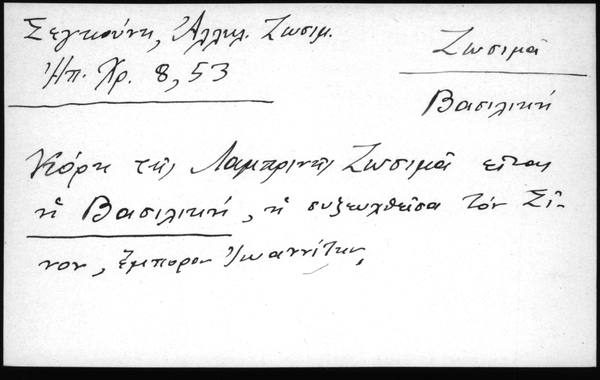 Σεγκούνη, Ἀλληλ. Ζωσιμ.
Ἠπ. Χρ. 8, 53
Ζωσιμᾶ
Βασιλική
Κόρη τῆς Λαμπρινῆς Ζωσιμᾶ εἶναι
ἡ Βασιλική, ἡ συζευχθεῖσα τόν Σῖ-
νον, ἔμπορον Ἰωαννίτην,